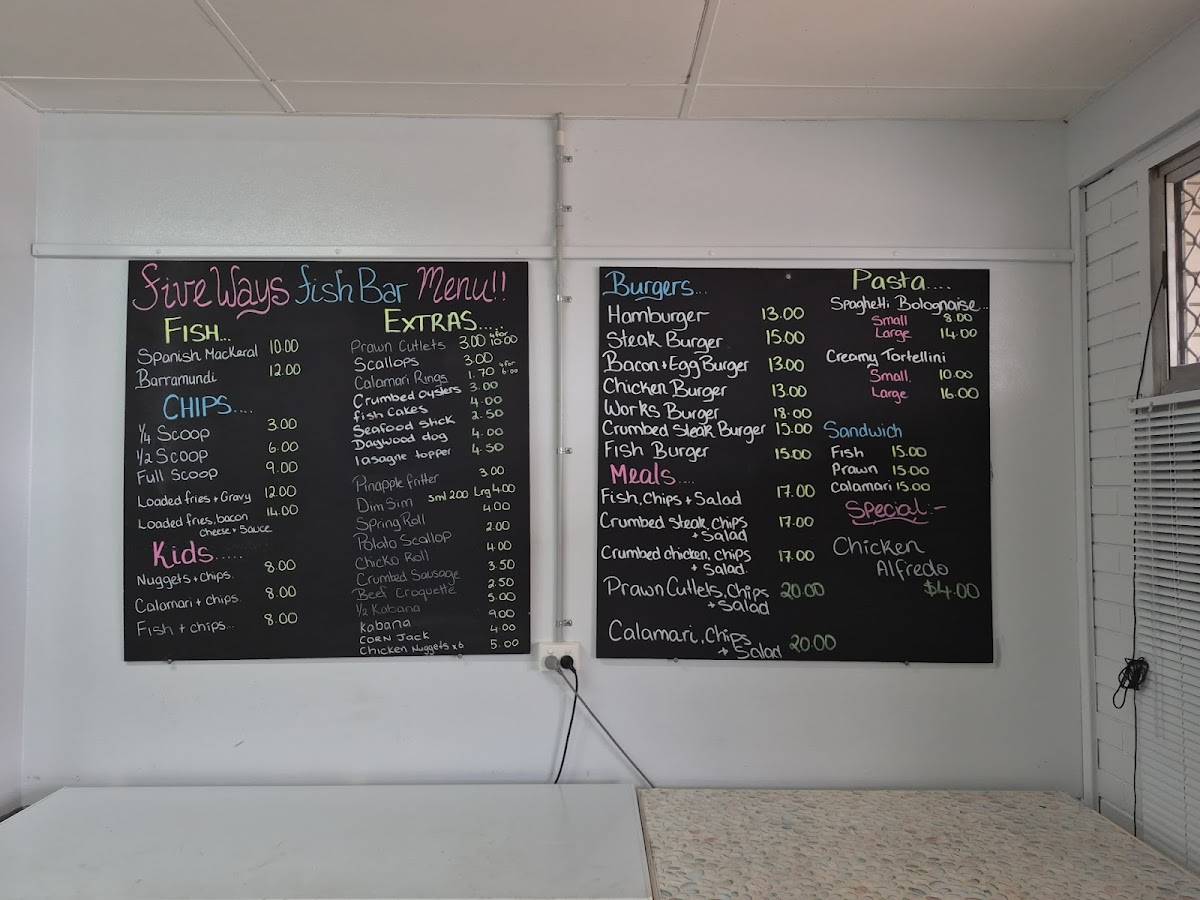 Five Ways Fish Bar Menu!!
FISH...
Spanish Mackeral 10.00
Barramundi 12.00
CHIPS....
1/4 Scoop 3.00
1/2 Scoop 6.00
Full Scoop 9.00
Loaded fries + Gravy 12.00
Loaded fries, bacon 14.00
cheese + sauce
Kids.....
Nuggets + chips. 8.00
Calamari + chips. 8.00
Fish + chips... 8.00
EXTRAS.....
Prawn Cutlets 3.00 4 for 10.00
Scallops 3.00
Calamari Rings 1.70 4 for 6.00
Crumbed oysters 3.00
fish cakes 4.00
Seafood stick 2.50
Dagwood dog 4.00
lasagne topper 4.50
Pinapple fritter 3.00
Dim Sim sml 2.00 Lrg 4.00
Spring Roll 4.00
Potato Scallop 2.00
Chicko Roll 4.00
Crumbed Sausage 3.50
Beef Croquette 2.50
1/2 Kabana 5.00
Kabana 9.00
CORN JACK 4.00
Chicken Nuggets x6 5.00
Burgers...
Hamburger 13.00
Steak Burger 15.00
Bacon + Egg Burger 13.00
Chicken Burger 13.00
Works Burger 18.00
Crumbed Steak Burger 15.00
Fish Burger 15.00
Meals....
Fish, Chips + Salad 17.00
Crumbed steak, chips 17.00
+ Salad
Crumbed chicken, chips 17.00
+ Salad.
Prawn Cutlets, Chips 20.00
+ Salad
Calamari, Chips
+ Salad 20.00
Pasta....
Spaghetti Bolognaise...
Small 8.00
Large 14.00
Creamy Tortellini
Small. 10.00
Large 16.00
Sandwich
Fish 15.00
Prawn 15.00
Calamari 15.00
Special:-
Chicken
Alfredo
$4.00